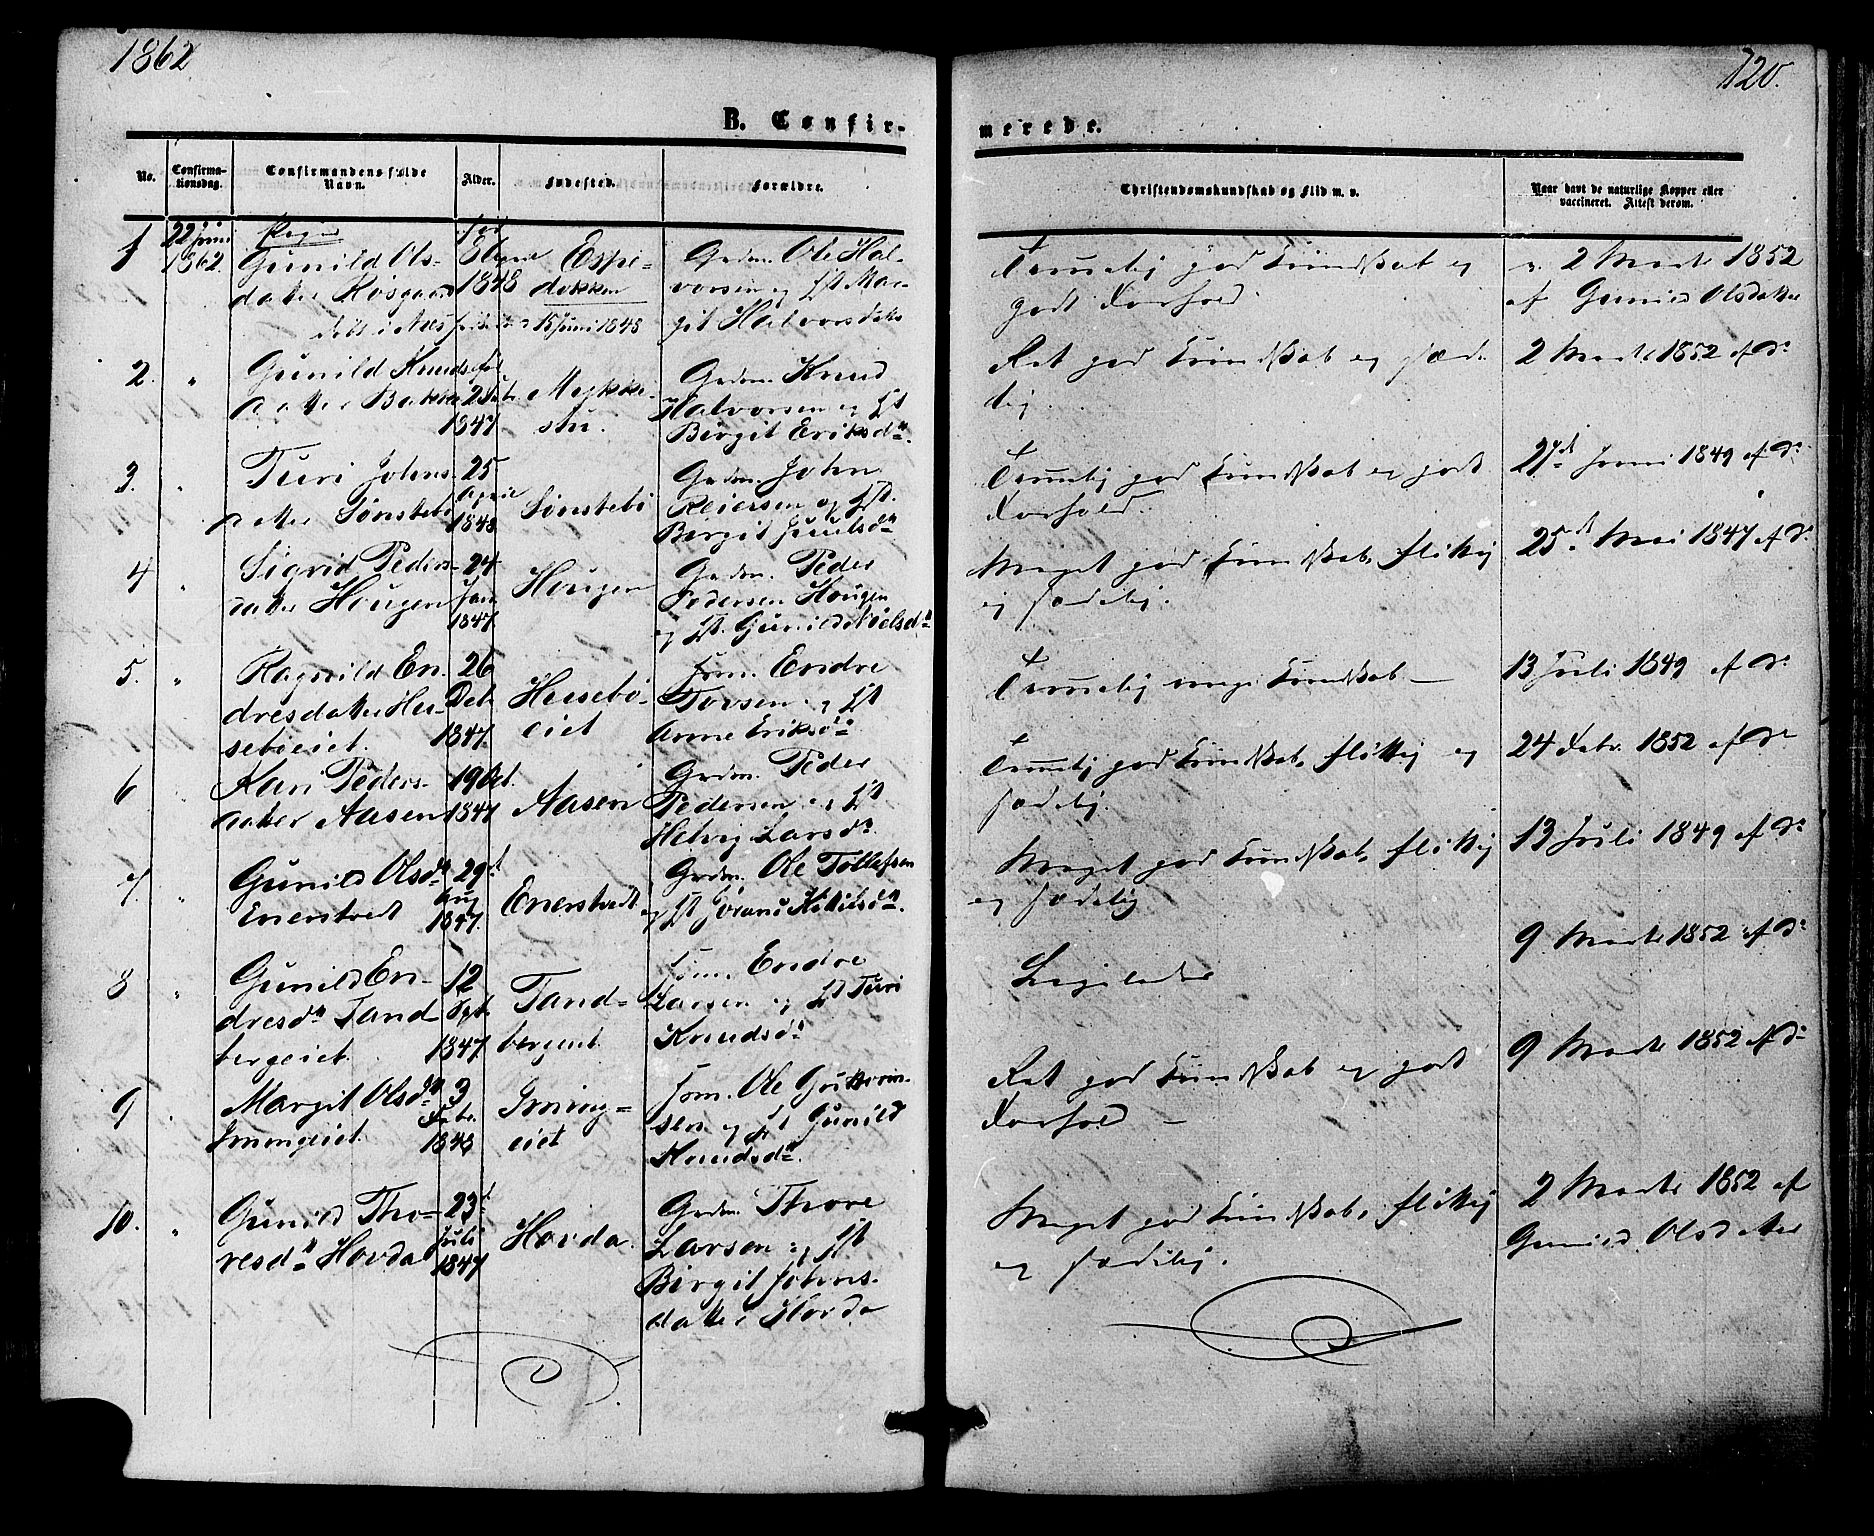 1862
120.
B. Confir-
merede.
No.
Confirma-
tionsdag.
Confirmandens fulde
Navn.
Alder.
Fødested.
Forældre.
Christendomskundskab og Flid m. v.
Naar havt de naturlige Kopper eller
vaccineret. Attest derom.
1
22 Juni
1862.
Piger
Gunild Ols-
datter Rosgaard
født i
15 Juni 1848
1848
Espe-
dokken
Grdm. Ole Hal-
vorsen og Hst Mar-
git Halvorsdatter
Temmelig god Kundskab og
godt Forhold.
v. 2 Marts 1852
af Gunild Olsdatter
2. "
Gunild Knuds-
datter Bakke
1847
Møkke-
stu.
Grdm. Knud
Halvorsen og Hst
Birgit Eriksdr.
Ret god Kundskab og sæde-
lig.
2 Marts 1852 af Do
3. "
Turi Johns-
datter Sønstebö
25
April
1848
Sønstebö
Grdm. John
Reiersen og Hst.
Birgit Juulsdr
Temmelig god Kundskab og godt
Forhold.
27d Juni 1849 af Do
4 "
Sigrid Peders-
datter Hougen
24
Jan
1847
Hougen
Grdm. Peder
Pedersen Hougen
og Hst. Gunild Nielsdr
Meget god Kundskab, flittig
og sædelig.
25d Mai 1847 af Do
5. "
Ragnild En-
dresdatter Hu-
seböeiet.
26
Deb
1847.
Huseb̈o-
eiet
Hsm. Endre
Torsen og Hst
Anne Eriksdr
Temmelig ringe Kundskab —
13 Juli 1849 af Do
6 "
Kari Peders-
datter Aasen
19 Oct.
1847
Aasen
Grdm. Peder
Pedersen og Hst
Helvig Larsdr.
Temmelig god Kundskab, flittig og
sædelig.
24 Febr. 1852 af Do
7. "
Gunild Olsdr
Enerstvedt
29d
Aug
1847.
Enerstvedt
Grdm. Ole Tollefsen
og Hst Jörand Kittilsdr.
Meget god Kundskab, flittig
og sædelig
13 Juli 1849 af Do
8 "
Gunild En-
dresdr Tand-
bergeiet.
12
Spt.
1847
Tand-
bergeiet.
Hsm. Endre
Larsen og Hst Turi
Knudsdr
Ligeledes
9 Marts 1852 af Do
9 "
Margit Olsdr
Imingeiet.
3
Febr.
1848
Iming-
eiet
Hsm. Ole Guttorm-
sen og Hst Gunild
Knudsdr.
Ret god Kundskab og godt
Forhold —
9 Marts 1852 af Do
10. "
Gunild Tho-
resdr Hovda
23d
Juli
1847
Hovda.
Grdm. Thore
Larsen og Hst
Birgit Johns-
datter Hovda
Meget god Kundskab, flittig
og sædelig.
2 Marts 1852 af
Gunild Olsdatter